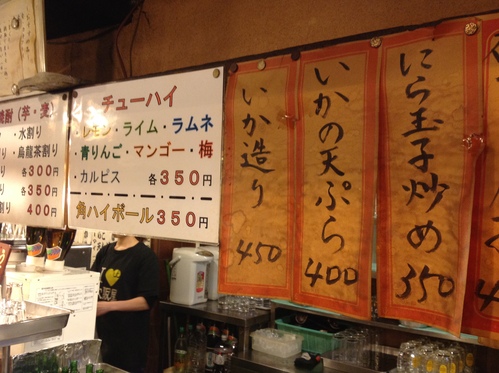 焼酎(芋・麦)
・水割り
・烏龍茶割り
各300円
350円
400円
チューハイ
・レモン・ライム・ラムネ
・青りんご・マンゴー・梅
・カルピス 各350円
角ハイボール350円
いか造り
450
いかの天ぷら
400
にら玉子炒め
350